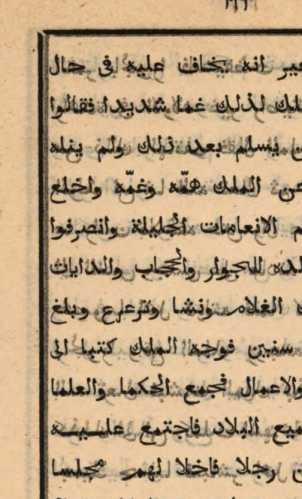 انه يخاف عليه فى حال
لذلك غما شديدا فقالوا
يسلم بعد ذلك ولم ينله
عن الملك همّه وغمّه واخلع
الانعامات الجليلة وانصرفوا
للجوار والحجاب والدايات
الغلام ونشا وترعرع وبلغ
سنين فوجه الملك كتبا الى
والاعمال فجمع الحكما والعلما
البلاد فاجتمع عليه
رجلا فاخلا لهم مجلسا